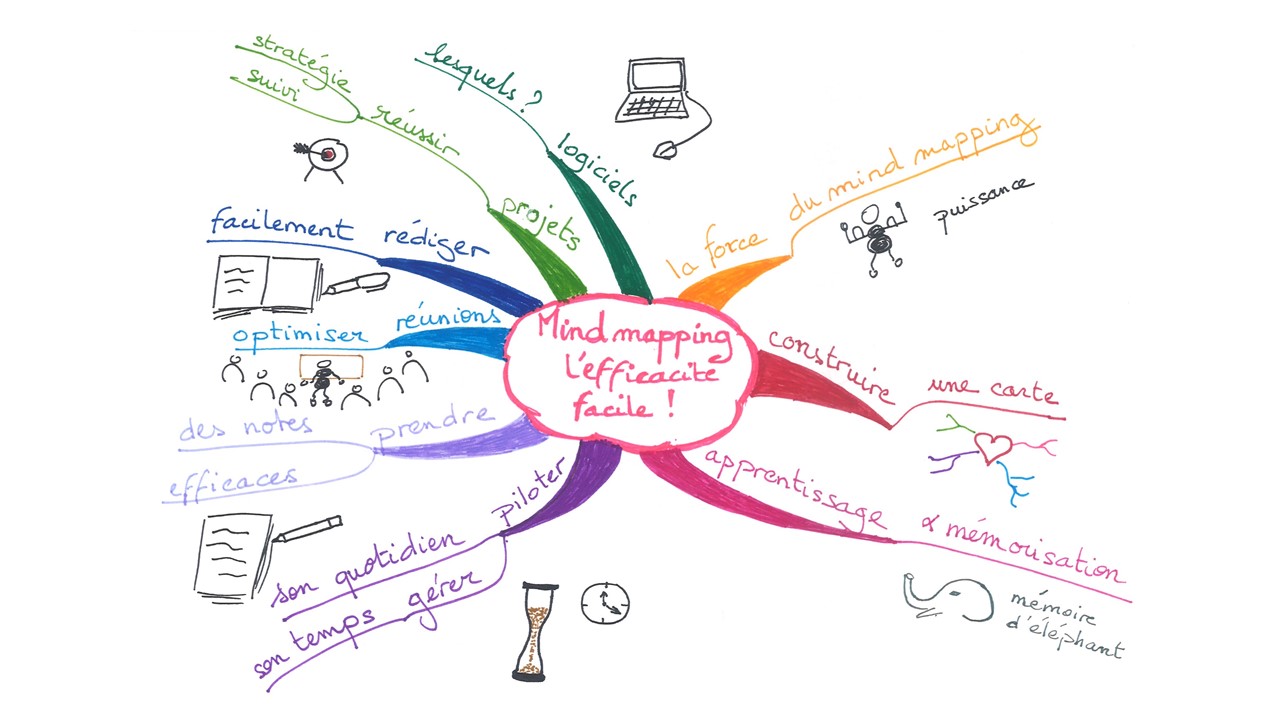 Mind mapping
l'efficacité
facile !
la force
du mind mapping
puissance
construire
une carte
apprentissage
& mémorisation
mémoire
d'éléphant
piloter
son quotidien
son temps gérer
prendre
des notes
efficaces
réunions
optimiser
rédiger
facilement
projets
réussir
stratégie
suivi
logiciels
lesquels ?